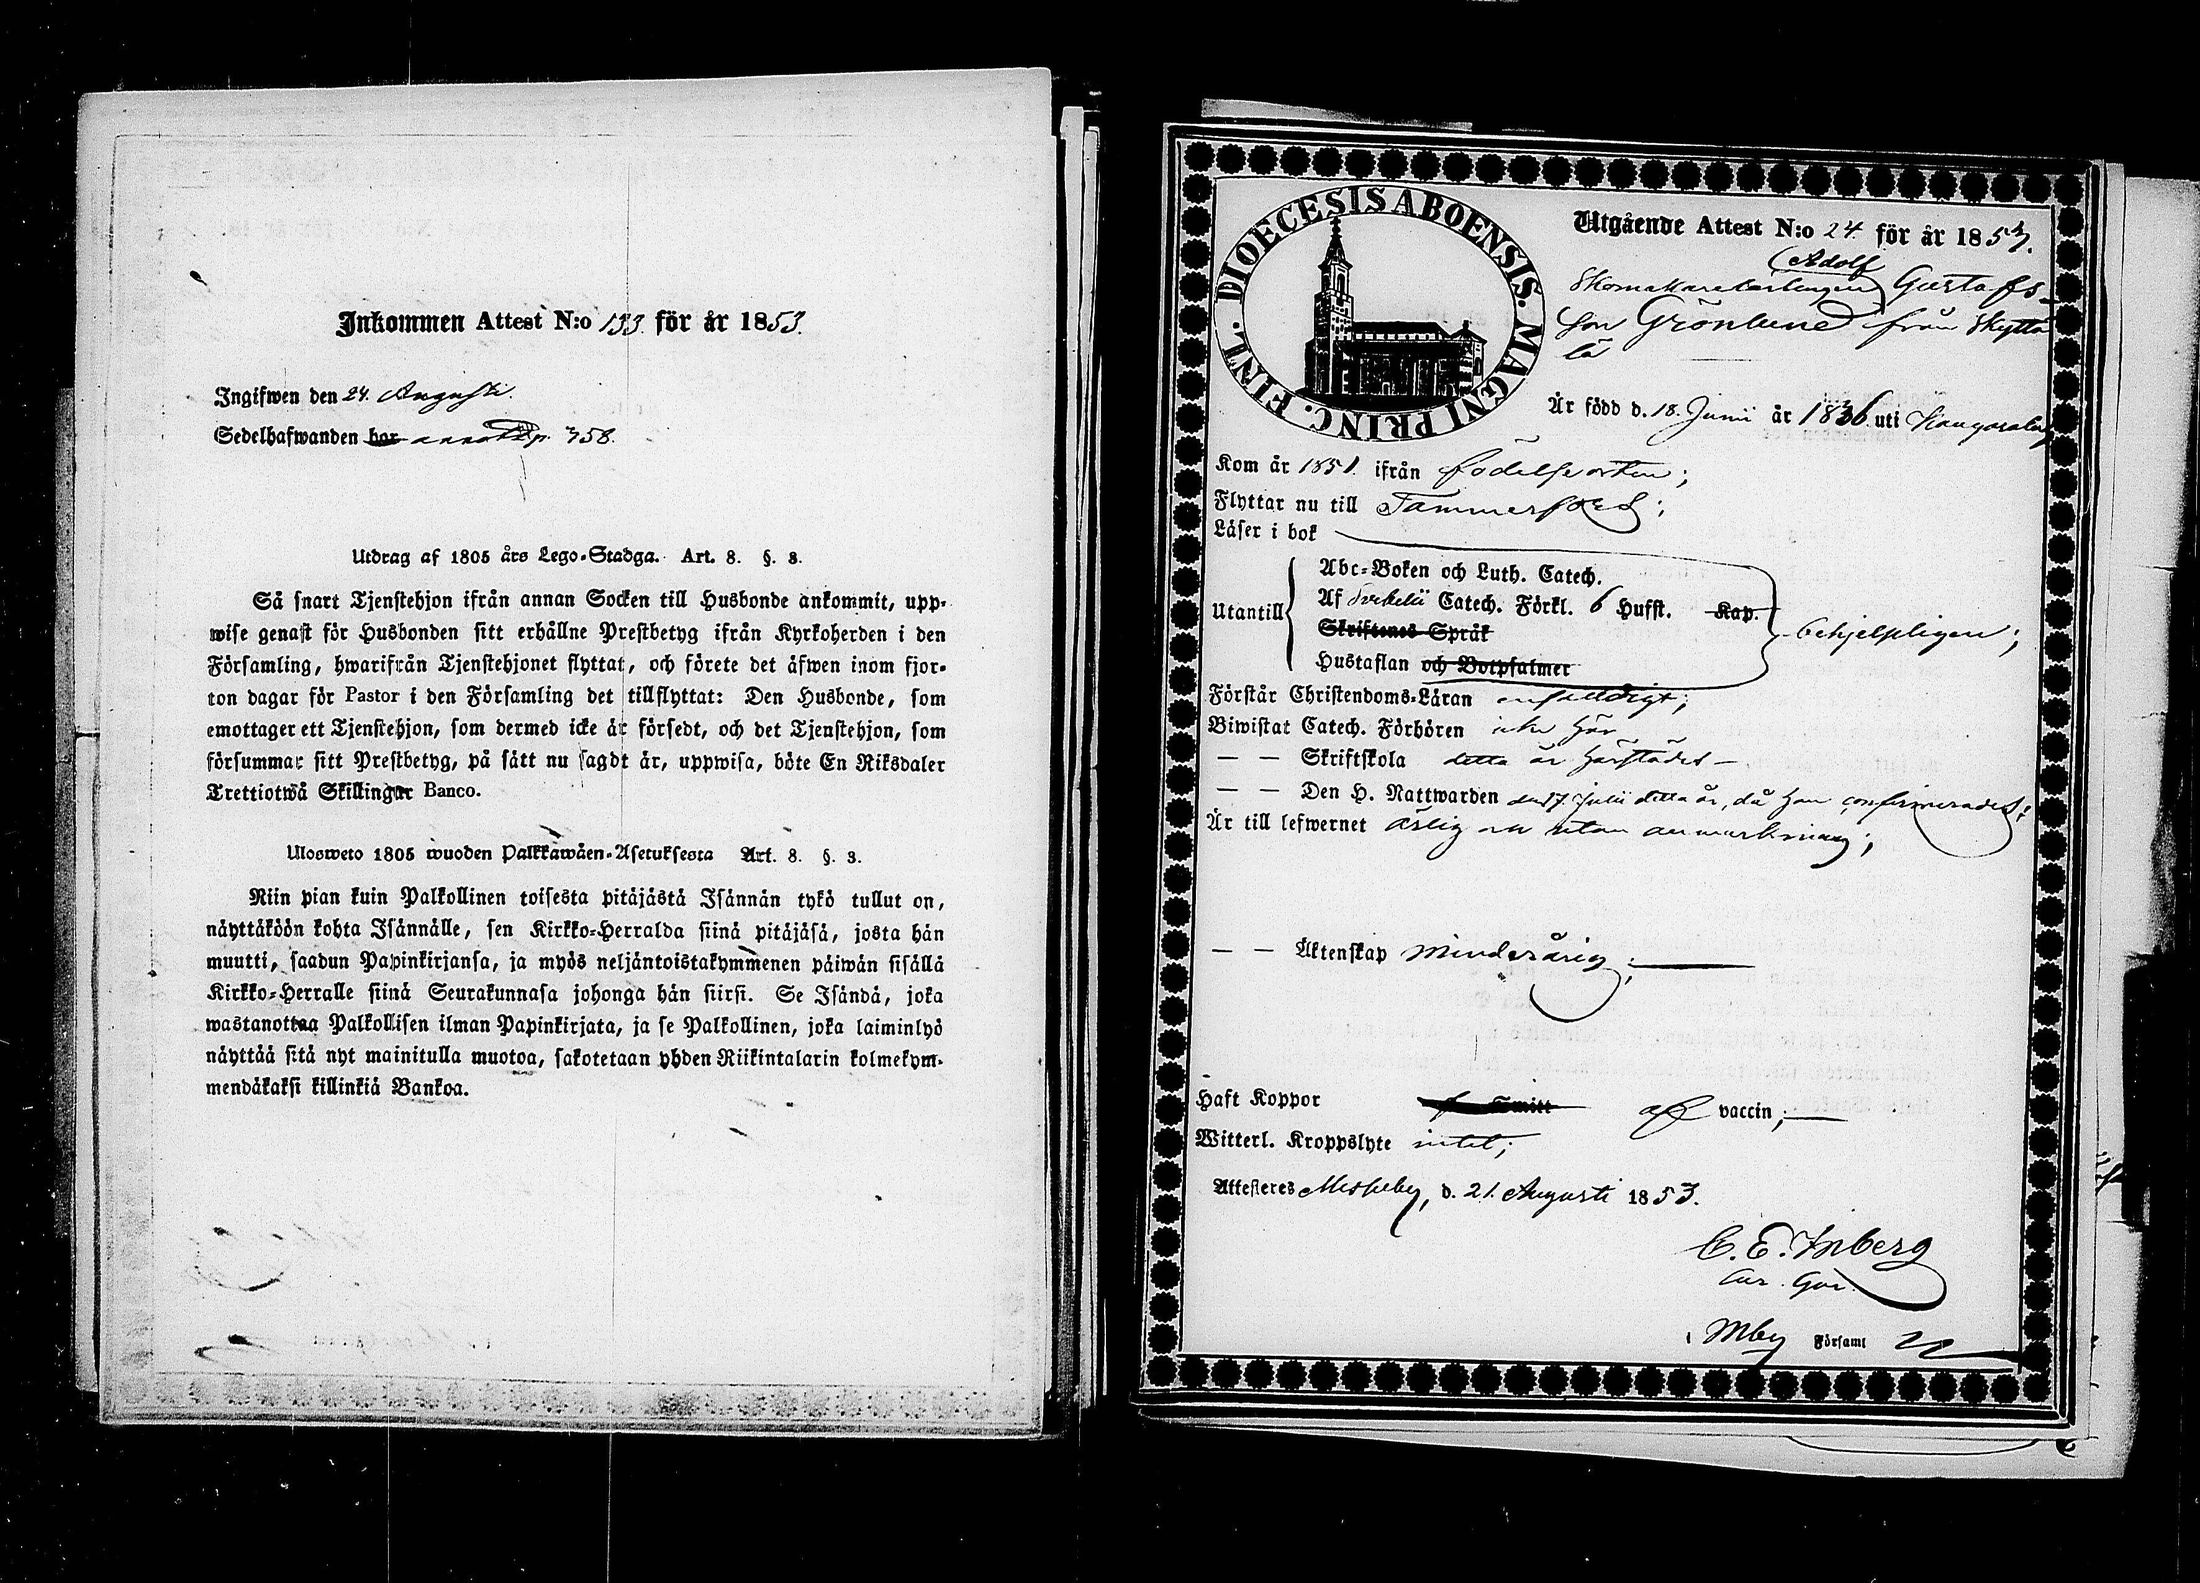 Inkommen Attest N:o 133 för år 1853.
Ingifwen den 24. Augusti.
Sedelhafwanden har annot. p. 758.
Utdrag af 1805 års Lego-Stadga. Art. 8. §. 3.
Så snart Tjenstehjon ifrån annan Socken till Husbonde ankommit, upp-
wise genast för Husbonden sitt erhållne Prestbetyg ifrån Kyrkoherden i den
Församling, hwarifrån Tjenstehjonet flyttat, och förete det äfwen inom fjor-
ton dagar för Pastor i den Församling det tillflyttat: Den Husbonde, som
emottager ett Tjenstehjon, som dermed icke är försedt, och det Tjenstehjon, som
försummar sitt Prestbetyg, på sätt nu sagdt är, uppwisa, böte En Riksdaler
Trettiotwå Skillingar Banco.
Ulosweto 1805 wuoden Palkkawäen-Asetuksesta Art. 8. §. 3.
Niin pian kuin Palkollinen toisesta pitäjästä Isännän tykö tullut on,
näyttäköön kohta Isännälle, sen Kirkko-Herralda siinä pitäjäsä, josta hän
muutti, saadun Papinkirjansa, ja myös neljäntoistakymmenen päiwän sisällä
Kirkko-Herralle siinä Seurakunnasa johonga hän siirsi. Se Isändä, joka
wastanottaa Palkollisen ilman Papinkirjata, ja se Palkollinen, joka laiminlyö
näyttää sitä nyt mainitulla muotoa, sakotetaan yhden Riikintalarin kolmekym-
mendäkaksi killinkiä Bankoa.
DIOECESIS ABOENSIS. MAGNI PRINC. FINL.
Utgående Attest N:o 24. för år 1853.
Adolf
Skomakarelärlingen Gustafs-
son Grönlund från Skytta
lä
Är född d. 18. Junii år 1836 uti Kangasala;
Kom år 1851. ifrån födelseorten;
Flyttar nu till Tammerfors;
Läser i bok
Abc-Boken och Luth. Catech.
Utantill Af Svebelii Catech. Förkl. 6 Hufst. Kap. behjelpligen;
Skriftenes Språk
Hustaflan och Botpsalmer
Förstår Christendoms-Läran enfaldigt;
Biwistat Catech. Förhören icke här
— — Skriftskola detta år härstädes —
— — Den H. Nattwarden den 17. Julii detta år, då han confirmerades;
Är till lefwernet ärlig och utan anmärkning;
— — Äktenskap minderårig;
Haft Koppor af vaccin;
Witterl. Kroppslyte intet;
Attesteras Messuby, d. 21. Augusti 1853.
C. E. Inberg
i Mby Församl